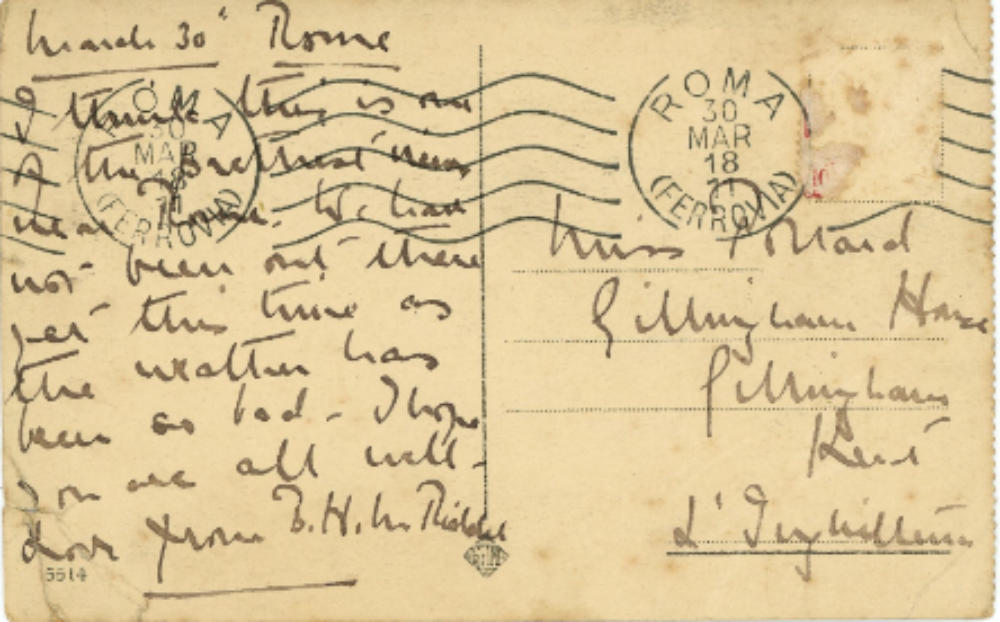 March 30" Rome
I think this is one
of the prettiest views
near Rome. We have
not been out there
yet this time as
the weather has
been so bad - I hope
you are all well -
Love from B.H.
5514
ROMA
30
MAR
18
(FERROVIA)
ROMA
30
MAR
18
(FERROVIA)
Miss Pollard
Gillingham House
Gillingham
Kent
L' Inghilterra